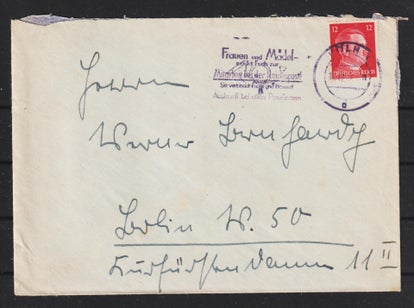 Frauen und Mädel-
meldet Euch zur
Mitarbeit bei der Reichspost!
Auskunft bei allen Postämtern
12 12
DEUTSCHES REICH
Herrn
Werner Bernhardy
Berlin W. 50
Kurfürstendamm 11 II